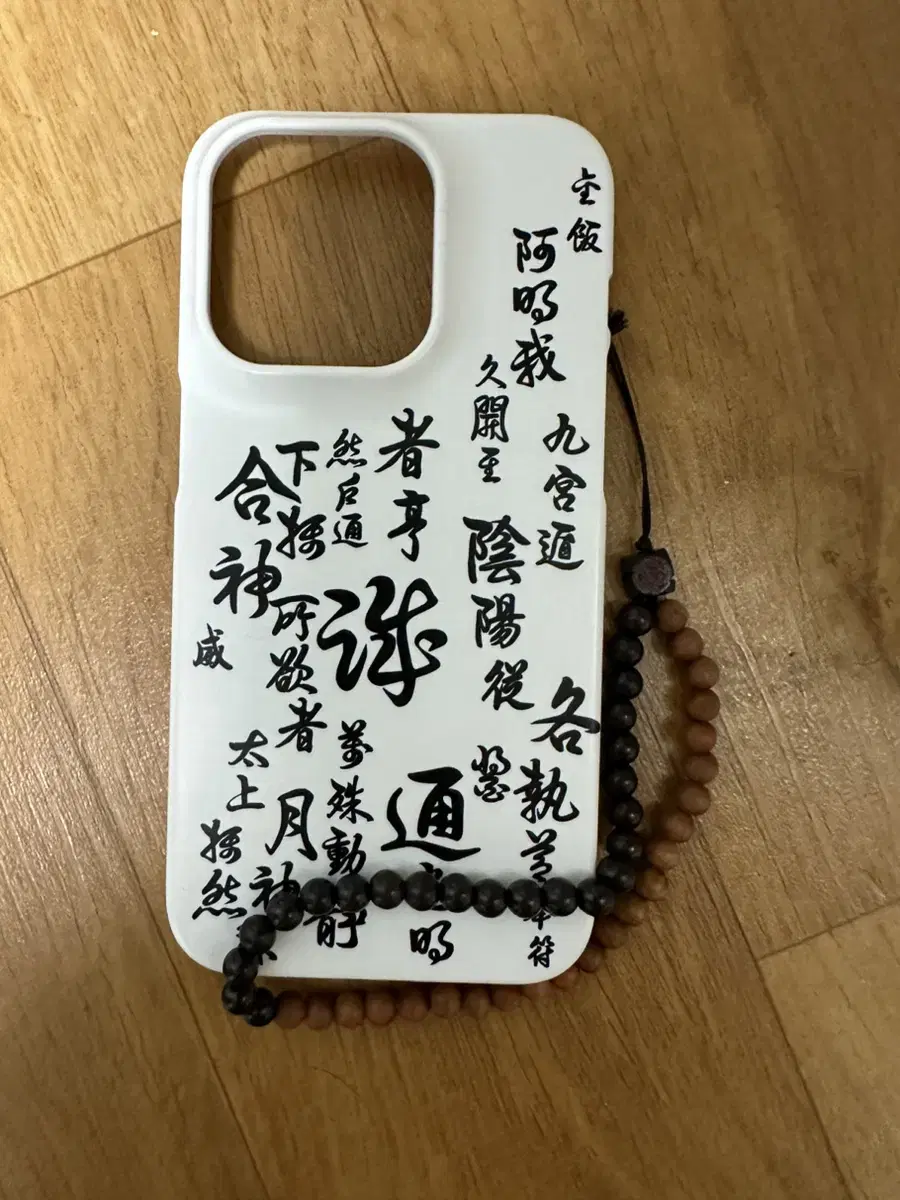 飯
阿明我
九宮遁
久開至
陰陽從
各執
符
者亨
誅
通
明
然后通
萬殊動
下
所欲者
月神
合神
威
太上
然